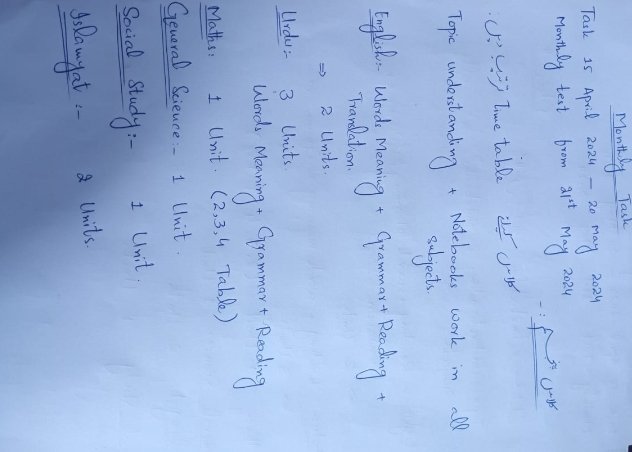 Monthly Task
Task 15 April 2024 – 20 May 2024
Monthly test from 21st May 2024
Time table
Topic understanding + Notebooks work in all
subjects.
English:- Words Meaning + Grammar + Reading +
Translation.
⇒ 2 Units.
Urdu:- 3 Units
Words Meaning + Grammar + Reading
Maths: 1 Unit. (2,3,4 Table)
General Science:- 1 Unit.
Social Study:- 1 Unit.
Islamyat :- 2 Units.